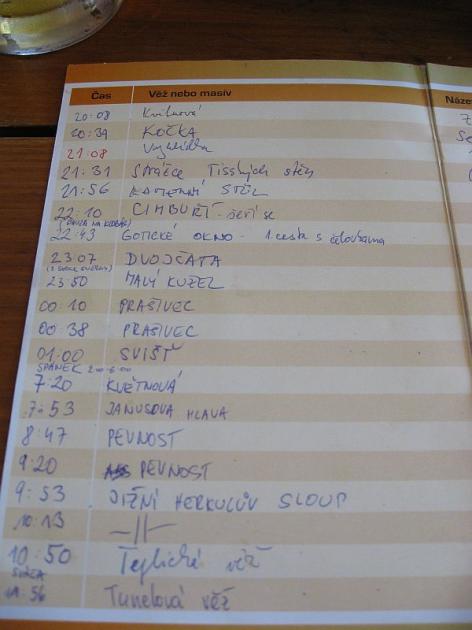 Čas Věž nebo masiv Název
20:08 Květnová
20:39 KOČKA
21:08 Vyhlídka
21:31 Strážce Tisských stěn
21:56 KAMENNÝ STŮL
22:10 CIMBUŘÍ - šeří se
22:43 GOTICKÉ OKNO - 1. cesta s čelovkama
23:07 DVOJČATA
23:50 MALÝ KUŽEL
00:10 PRAŠIVEC
00:38 PRAŠIVEC
01:00 SVIŠŤ
SPÁNEK 2:00-6:00
7:20 KVĚTNOVÁ
7:53 JANUSOVA HLAVA
8:47 PEVNOST
9:20 PEVNOST
9:53 JIŽNÍ HERKULŮV SLOUP
10:13 —||—
10:50 Teplická věž
11:56 Tunelová věž